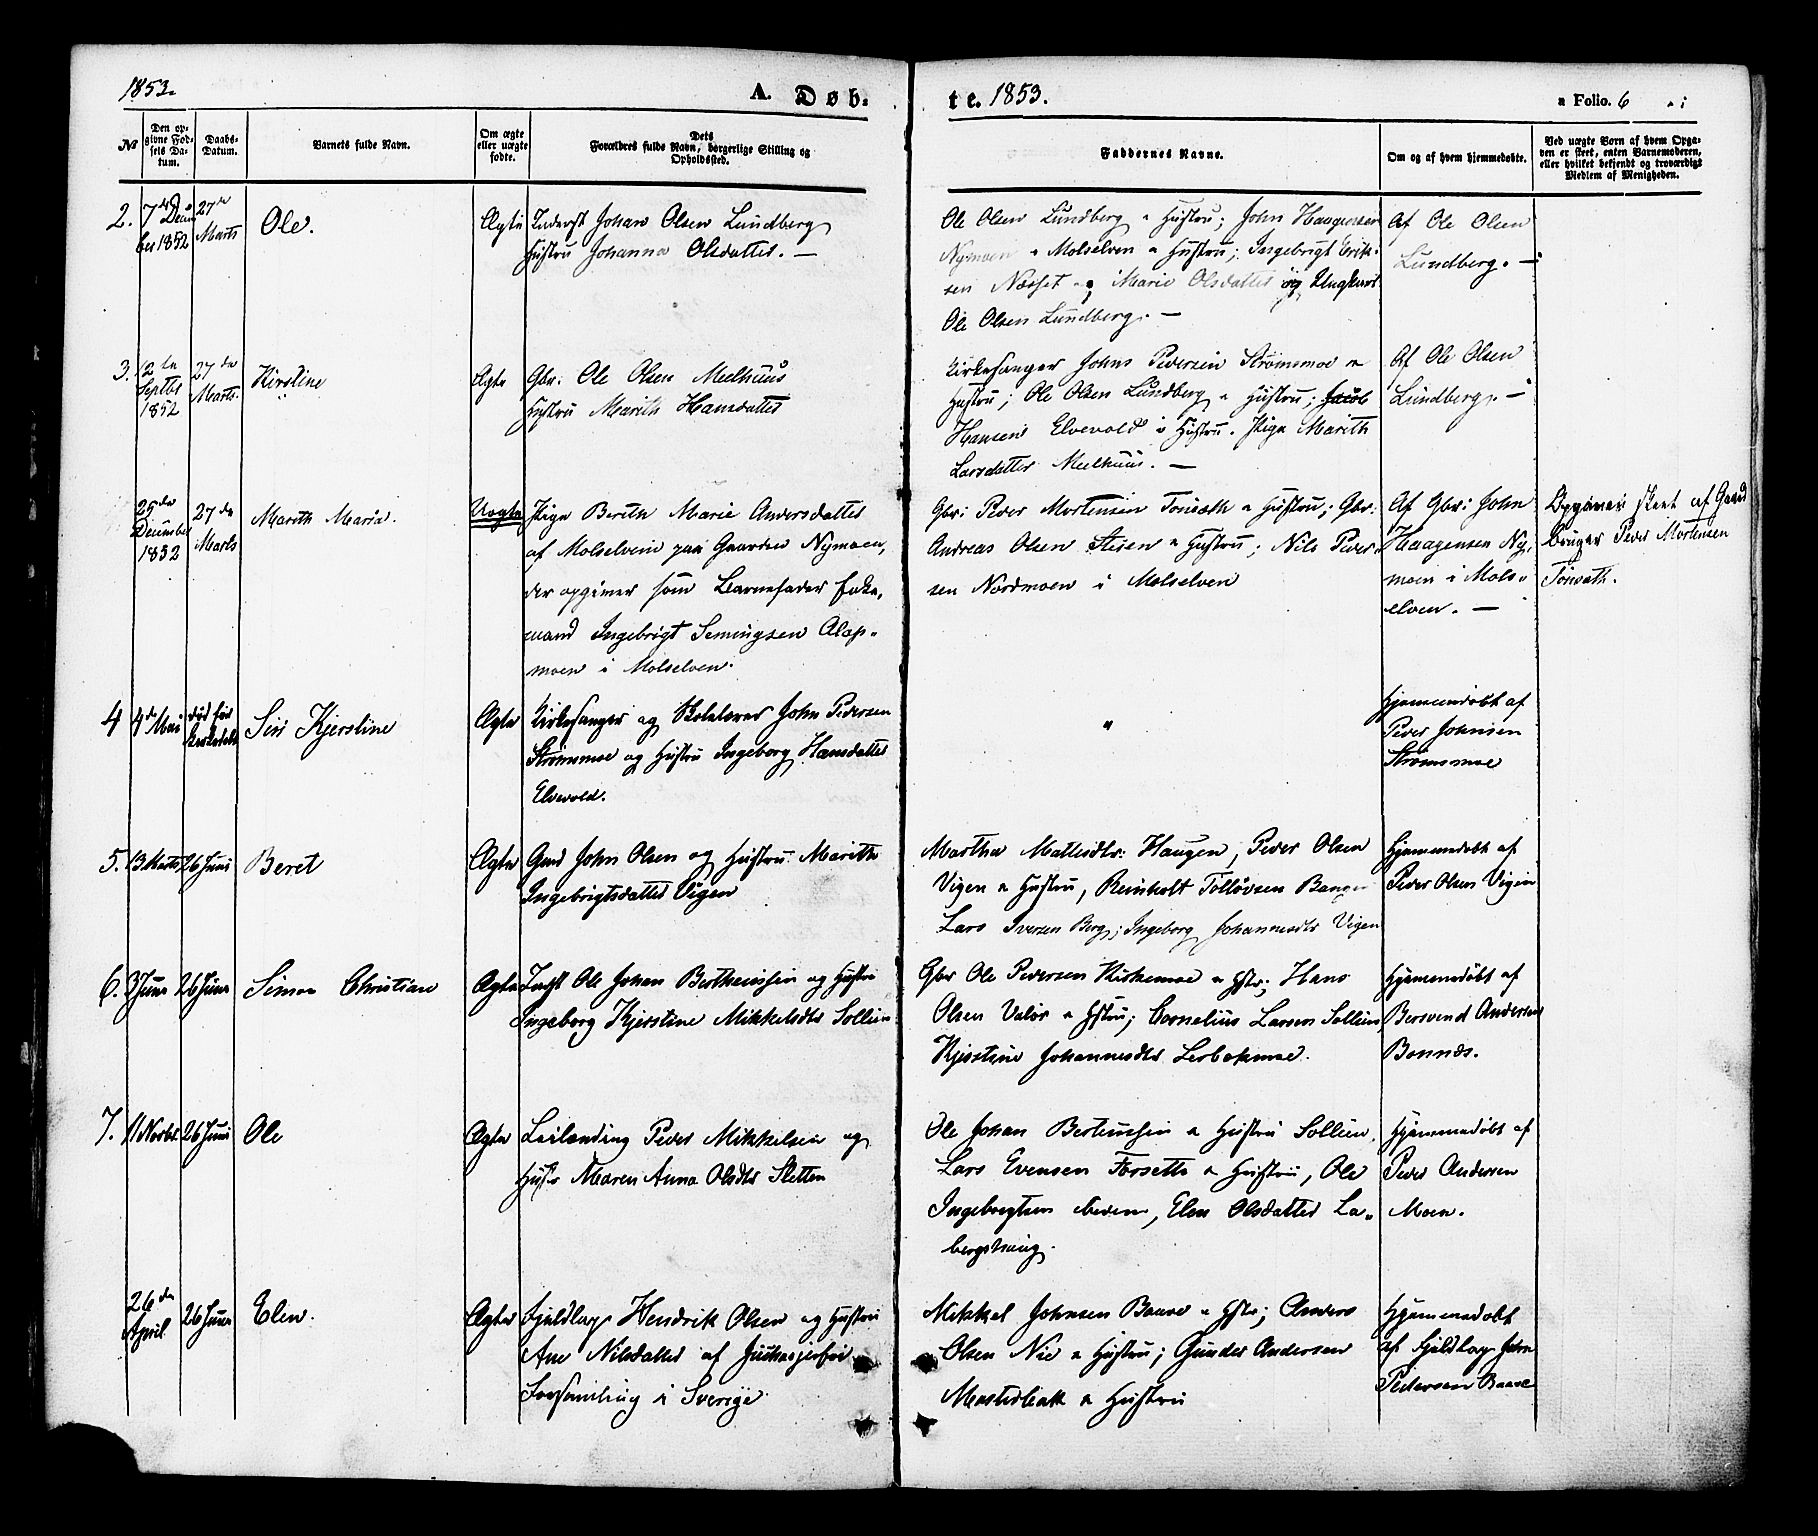 1853.
A. Døb-
te. 1853.
Folio. 6
№
Den op-
givne Fød-
sels Da-
tum.
Daabs-
Datum.
Barnets fulde Navn.
Om ægte
eller uægte
fødte.
Dets
Forældres fulde Navn, borgerlige Stilling og
Opholdssted.
Faddernes Navne.
Om og af hvem hjemmedøbte.
Ved uægte Børn af hvem Opga-
ven er skeet, enten Barnemoderen,
eller hvilket bekjendt og troværdigt
Medlem af Menigheden.
2.
7de Decem
ber 1852
27de
Marts
Ole.
Ægte
Inderst Johan Olsen Lundberg
Hustru Johanna Olsdatter. —
Ole Olsen Lundberg " Hustru; John Haagensen
Nymoen " Molselven " Hustru; Ingebrigt Erik-
sen Næsset og Marie Olsdatter og Ungkarl
Ole Olsen Lundberg. —
Af Ole Olsen
Lundberg. —
3.
12te
Septbr
1852
27de
Marts.
Kirstine
Ægte
Gbr. Ole Olsen Melhuus
Hustru Marith Hansdatter
Kirkesanger Johns Pedersen Strømsmoe "
Hustru; Ole Olsen Lundberg " Hustru; Jacob
Hansens Elvevold's Hustru. Pige Marith
Larsdatter Melhuus. —
Af Ole Olsen
Lundberg. —
25de
Decembe
1852
27de
Marts
Marith Maria.
Uægte
Pige Berith Marie Andersdatter
af Molselven paa Gaarden Nymoen,
der opgiver som Barnefader Enke-
mand Ingebrigt Semingsen Alap-
moen i Molselven.
Gbr: Peder Mortensen Tonsæth " Hustru; Gbr:
Andreas Olsen Steen " Hustru; Nils Peder-
sen Nordmoen i Molselven
Af Gbr: John
Haagensen Ny-
moen i Mols-
elven. —
Opgivelse skeet af Gaard
bruger Peder Mortensen
Tonsæth.
4
4de Mai
død før
Siri Kjerstine
Ægte
Kirkesanger og Skolelærer John Pedersen
Strømsmoe og Hustru Ingeborg Hansdatter
Elvevold.
"
Hjemmedøbt af
Peder Johnsen
Strømsmoe
5.
13 Marts
26 Juni
Beret
Ægte
Gmd John Olsen og Hustru Marith
Ingebrigtsdatter Vigen
Martha Matheisdtr: Haugen, Peder Olsen
Vigen " Hustru, Reinholt Tolløvsen Bangen
Lars Iversen Berg; Ingeborg Johannesdtr Vigen
Hjemmedøbt af
Peder Olsen Vigen
6.
3 Juni
26 Juni
Simon Christian
Ægte
Indst Ole Johan Bertheussen og Hustru
Ingeborg Kjerstine Mikkelsdtr Sollien
Gbr Ole Pedersen Kirkemoe " Hstr; Hans
Olsen Valør " Hstru; Cornelius Larsen Sollien
Kjerstine Johannesdtr Leebakmoe.
Hjemmedøbt af
Bersvend Andersen
Bonnæs.
7.
11 Novbr
26 Juni
Ole
Ægte
Leilænding Peder Mikkelsen og
Hustr Maren Anna Olsdtr Sletten
Ole Johan Berteussen " Hustru Sollien,
Lars Evensen Forsetle " Hustru, Ole
Ingebrigtsen Neden, Elen Olsdatter La-
bergshaug.
Hjemmedøbt af
Peder Andersen
Moen.
26de
April
26 Juni
Elen.
Ægte
Fjeldlap Hendrik Olsen og Hustru
Ane Nilsdatter af
Forsamling i Sverige.
Mikkel Johnsen Baave " Hstr; Anders
Olsen Nie " Hustru; Gunder Andersen
Masterbak " Hustru
Hjemmedøbt
af Fjeldlap John
Pedersen Baave